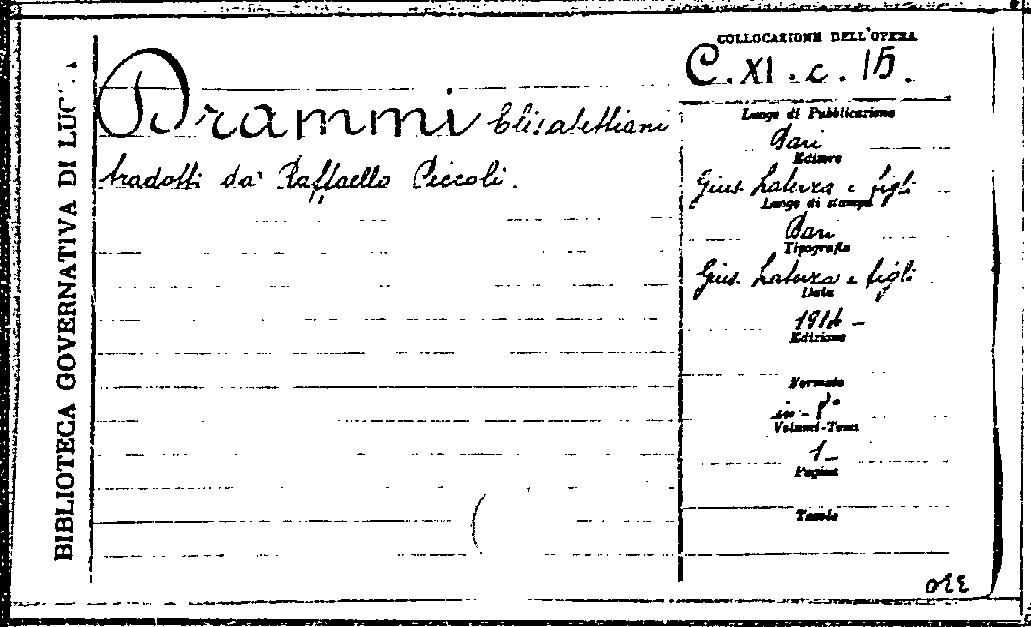 BIBLIOTECA GOVERNATIVA DI LUC
Drammi Elisabettiani
tradotti da Raffaello Piccoli.
COLLOCAZIONE DELL'OPERA
C. XI. c. 15.
Luogo di Pubblicazione
Bari
Editore
Gius. Laterza e figli
Luogo di stampa
Bari
Tipografia
Gius. Laterza e figli
Data
1914 -
Edizione
Formato
in-8°
Volumi-Tomi
1-
Pagine
Tavole